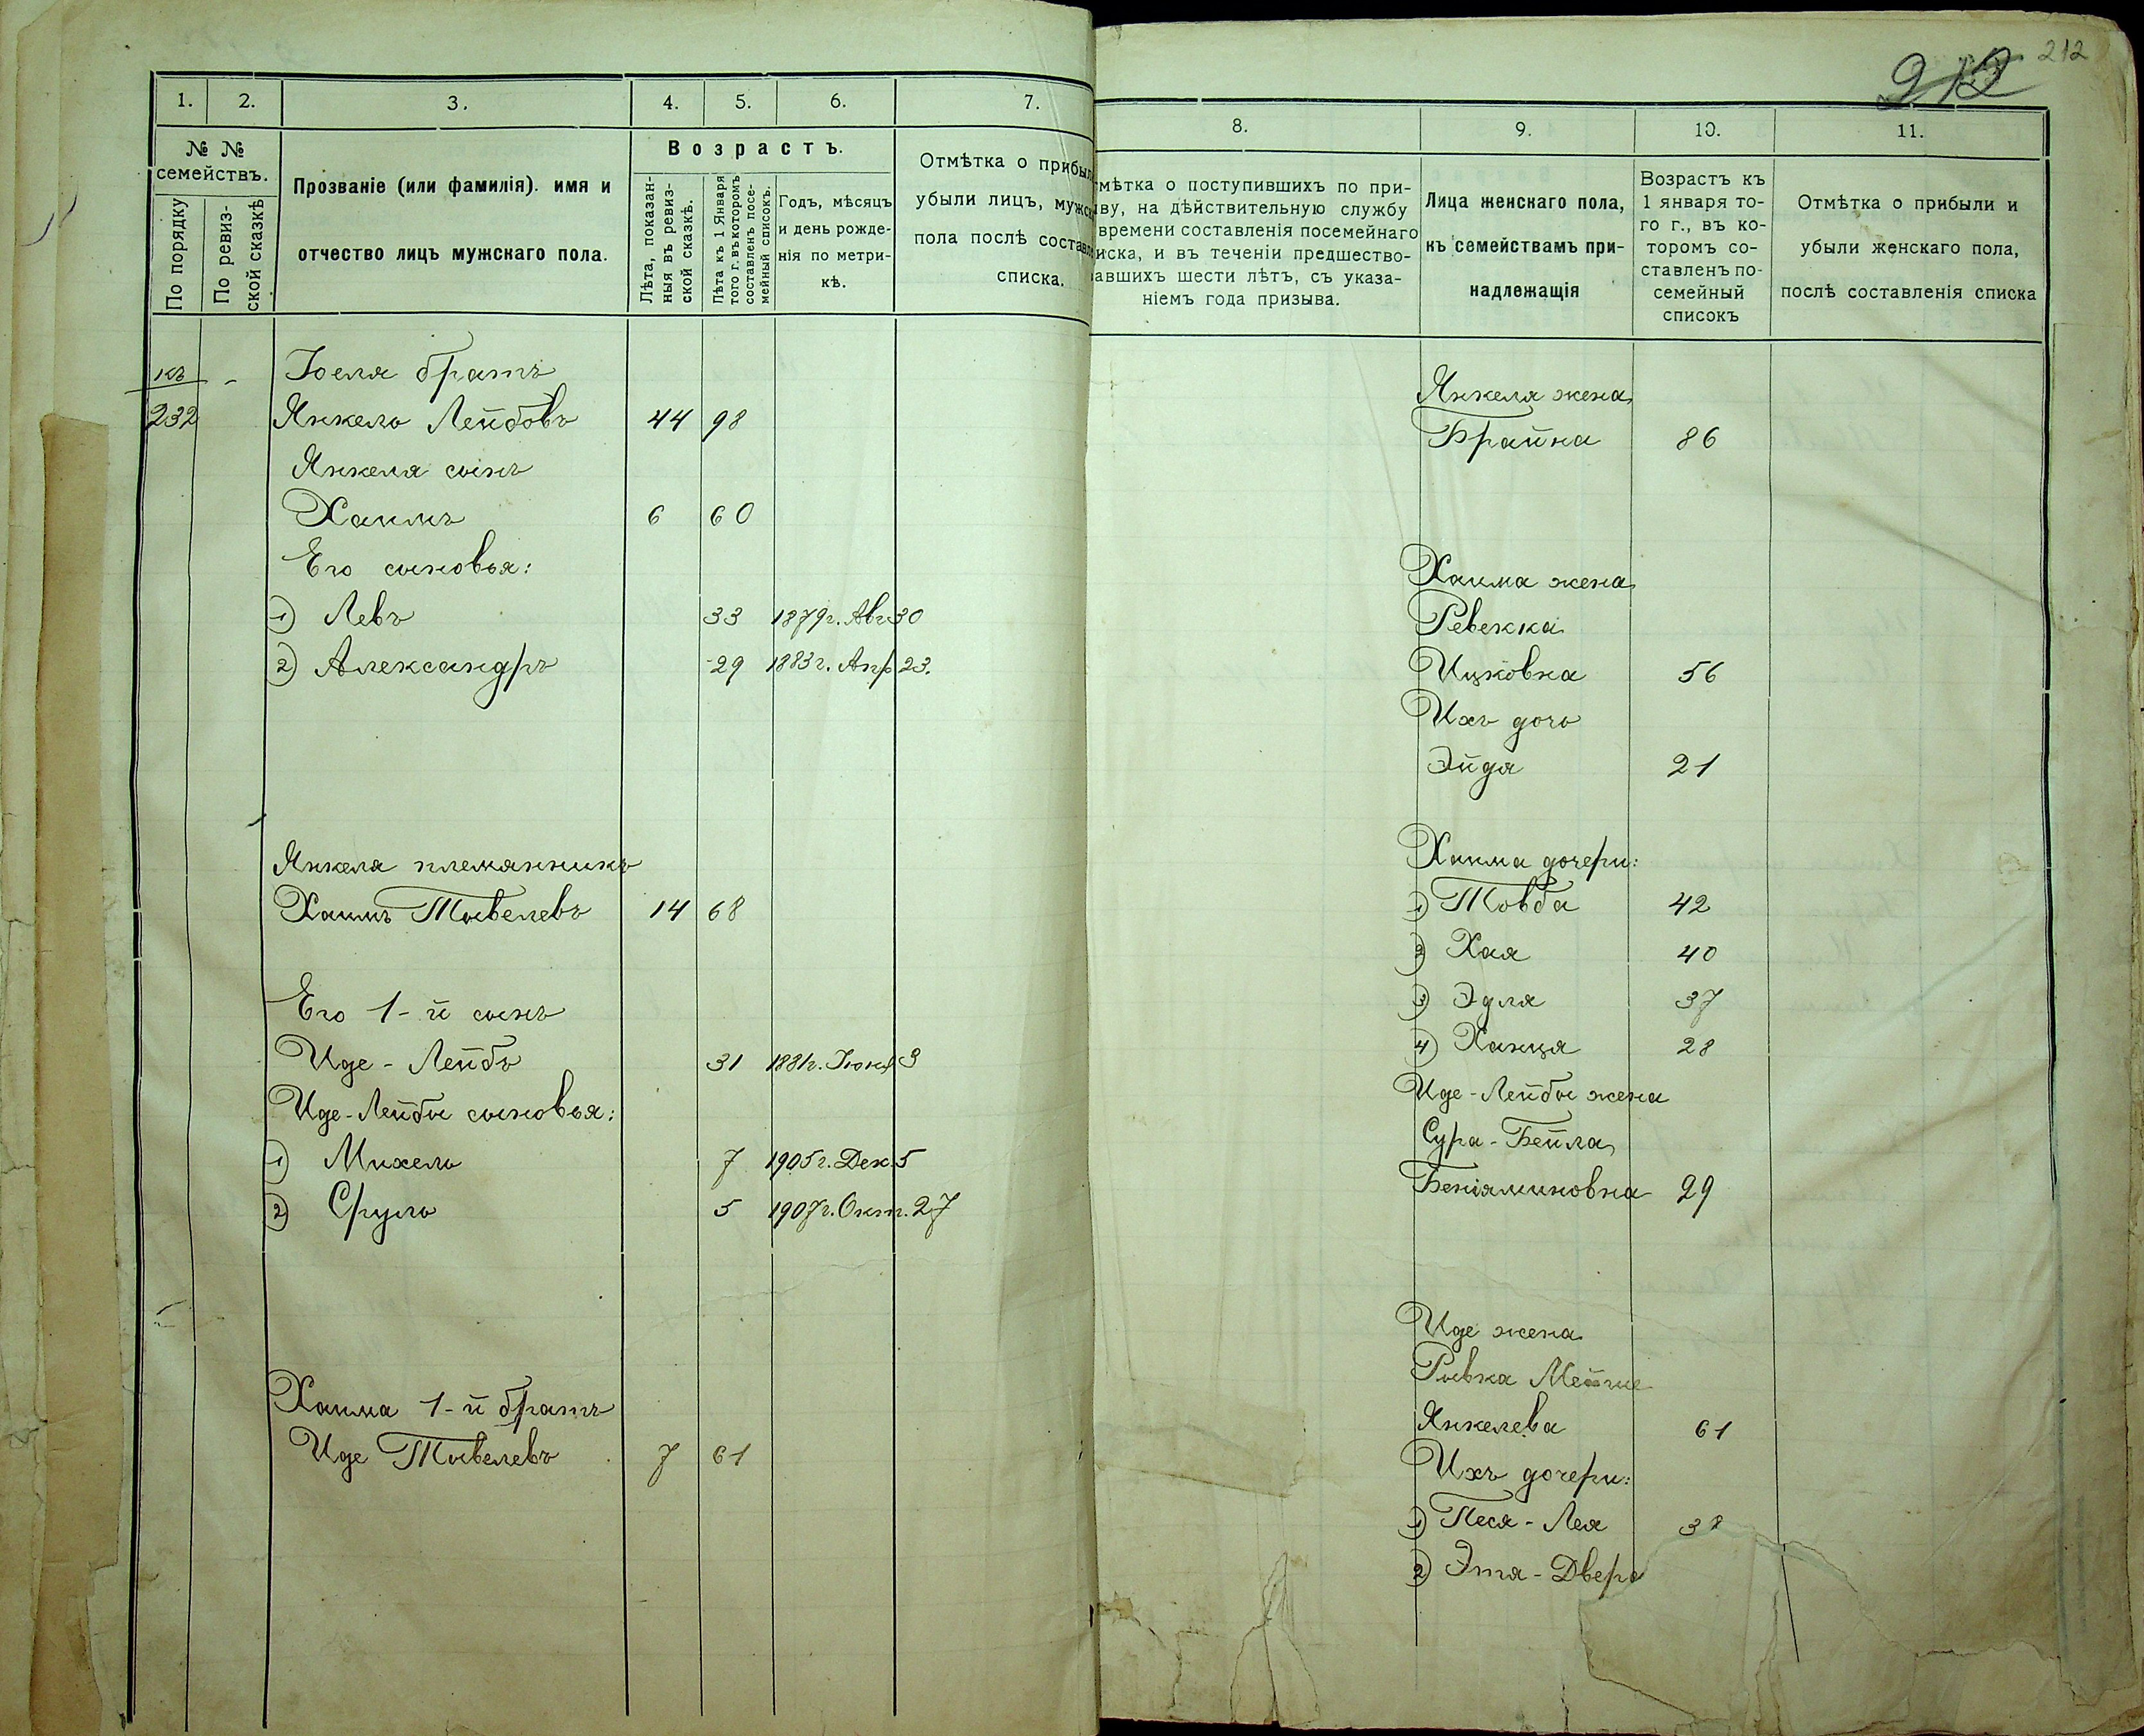 212
212
1. 2. 3. 4. 5. 6. 7.
№ №
семействъ.
По порядку
По ревиз-
ской сказкѣ
Прозваніе (или фамилія). имя и
отчество лицъ мужскаго пола.
Возрастъ.
Лѣта, показан-
ныя въ ревиз-
ской сказкѣ.
Лѣта къ 1 Января
того г. въ которомъ
составленъ посе-
мейный списокъ.
Годъ, мѣсяцъ
и день рожде-
нія по метри-
кѣ.
Отмѣтка о прибыл
убыли лицъ, мужск
пола послѣ составле
списка.
къ - Іоеля братъ
232 Янкель Лейбовъ 44 98
Янкеля сынъ
Хаимъ 6 60
Его сыновья:
1) Левъ 33 1879г. Авг 30
2) Александръ 29 1883г. Апр 23.
Янкеля племянникъ
Хаимъ Тывелевъ 14 68
Его 1-й сынъ
Иде-Лейбъ 31 1881г. Іюня 3
Иде-Лейбы сыновья:
1) Михель 7 1905г. Дек. 5
2) Сруль 5 1907г. Окт. 27
Хаима 1-й братъ
Иде Тывелевъ 7 61
8. 9. 10. 11.
тмѣтка о поступившихъ по при-
ыву, на дѣйствительную службу
времени составленія посемейнаго
писка, и въ теченіи предшество-
авшихъ шести лѣтъ, съ указа-
ніемъ года призыва.
Лица женскаго пола,
къ семействамъ при-
надлежащія
Возрастъ къ
1 января то-
го г., въ ко-
торомъ со-
ставленъ по-
семейный
списокъ
Отмѣтка о прибыли и
убыли женскаго пола,
послѣ составленія списка
Янкеля жена
Брайна 86
Хаима жена
Ревекка
Ицковна 56
Ихъ дочь
Эйдя 21
Хаима дочери:
1) Товба 42
2) Хая 40
3) Эдля 37
4) Ханця 28
Иде-Лейбы жена
Сура-Бейла
Беніяминовна 29
Иде жена
Рывка
Янкелева 61
Ихъ дочери:
1) Песя-Лея
2) Этя-Двера